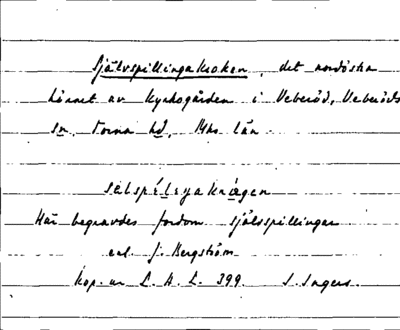 Självspillingakroken, det nordöstra
hörnet av kyrkogården i Veberöd, Veberöds
sn, Torna hd, Mhs län
Här begravdes fordom själsspillingar
enl. J. Bergström
Kop. ur L. A. L. 399. S. Ingers.